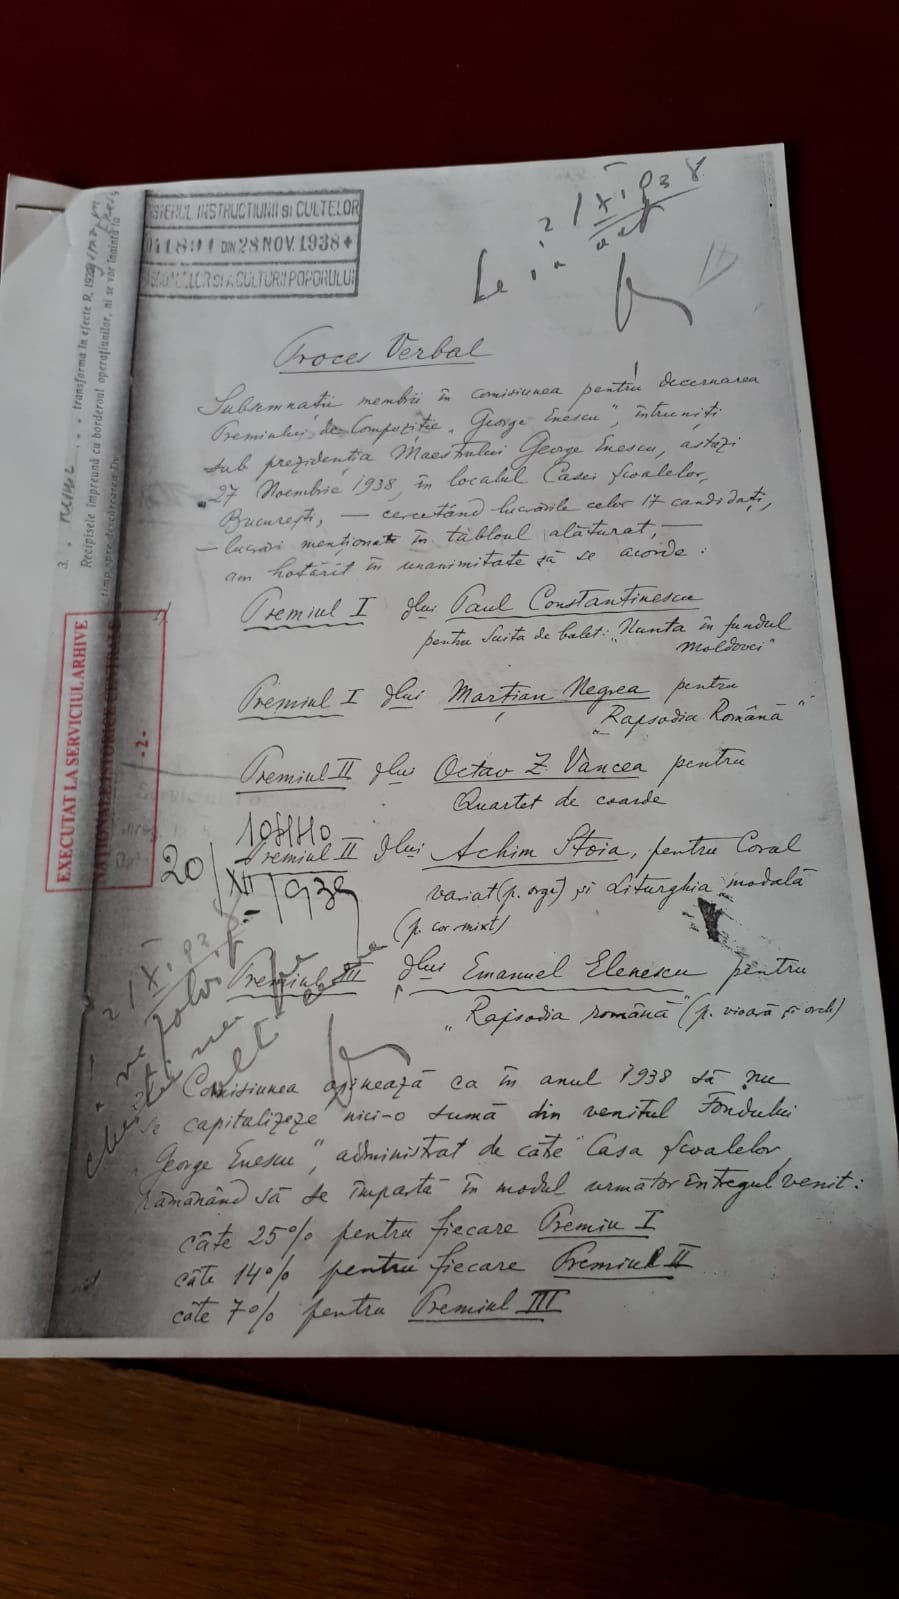 MINISTERUL INSTRUCTIUNII SI CULTELOR
DIN 28 NOV. 1938
SI A CULTURII POPORULUI
2/XI.938
Proces Verbal
Subsemnații membrii în comisiunea pentru decernarea
Premiului de Compoziție „George Enescu", întruniți
sub prezidenția Maestrului George Enescu, astăzi
27 Noembrie 1938, în localul Casei Școalelor,
București, — cercetând lucrările celor 17 candidați,
— lucrări menționate în tabloul alăturat, —
am hotărît în unanimitate să se acorde:
Premiul I dlui Paul Constantinescu
pentru Suita de balet: „Nunta în fundul
Moldovei"
Premiul I dlui Marțian Negrea pentru
„Rapsodia Română"
Premiul II dlui Octav Z. Vancea pentru
Quartet de coarde
Premiul II dlui Achim Stoia, pentru Coral
variat (p. orgă) și Liturghia modală
(p. cor mixt)
Premiul III dlui Emanuel Elenescu pentru
„Rapsodia română" (p. vioară și orch)
20/XII/939
2/XI.938
Comisiunea opinează ca în anul 1938 să nu
se capitalizeze nici-o sumă din venitul Fondului
„George Enescu", administrat de câtë Casa Școalelor,
rămânând să se împartă în modul următor întregul venit:
câte 25% pentru fiecare Premiu I
câte 14% pentru fiecare Premiul II
câte 7% pentru Premiul III
EXECUTAT LA SERVICIUL ARHIVE
NAȚIONALE ISTORICE CENTRALE
- 2 -
3.
transforma în efecte R. 19
Recipisele împreună cu borderoul operațiunilor, ni se vor înainta la
timp spre descărcarea